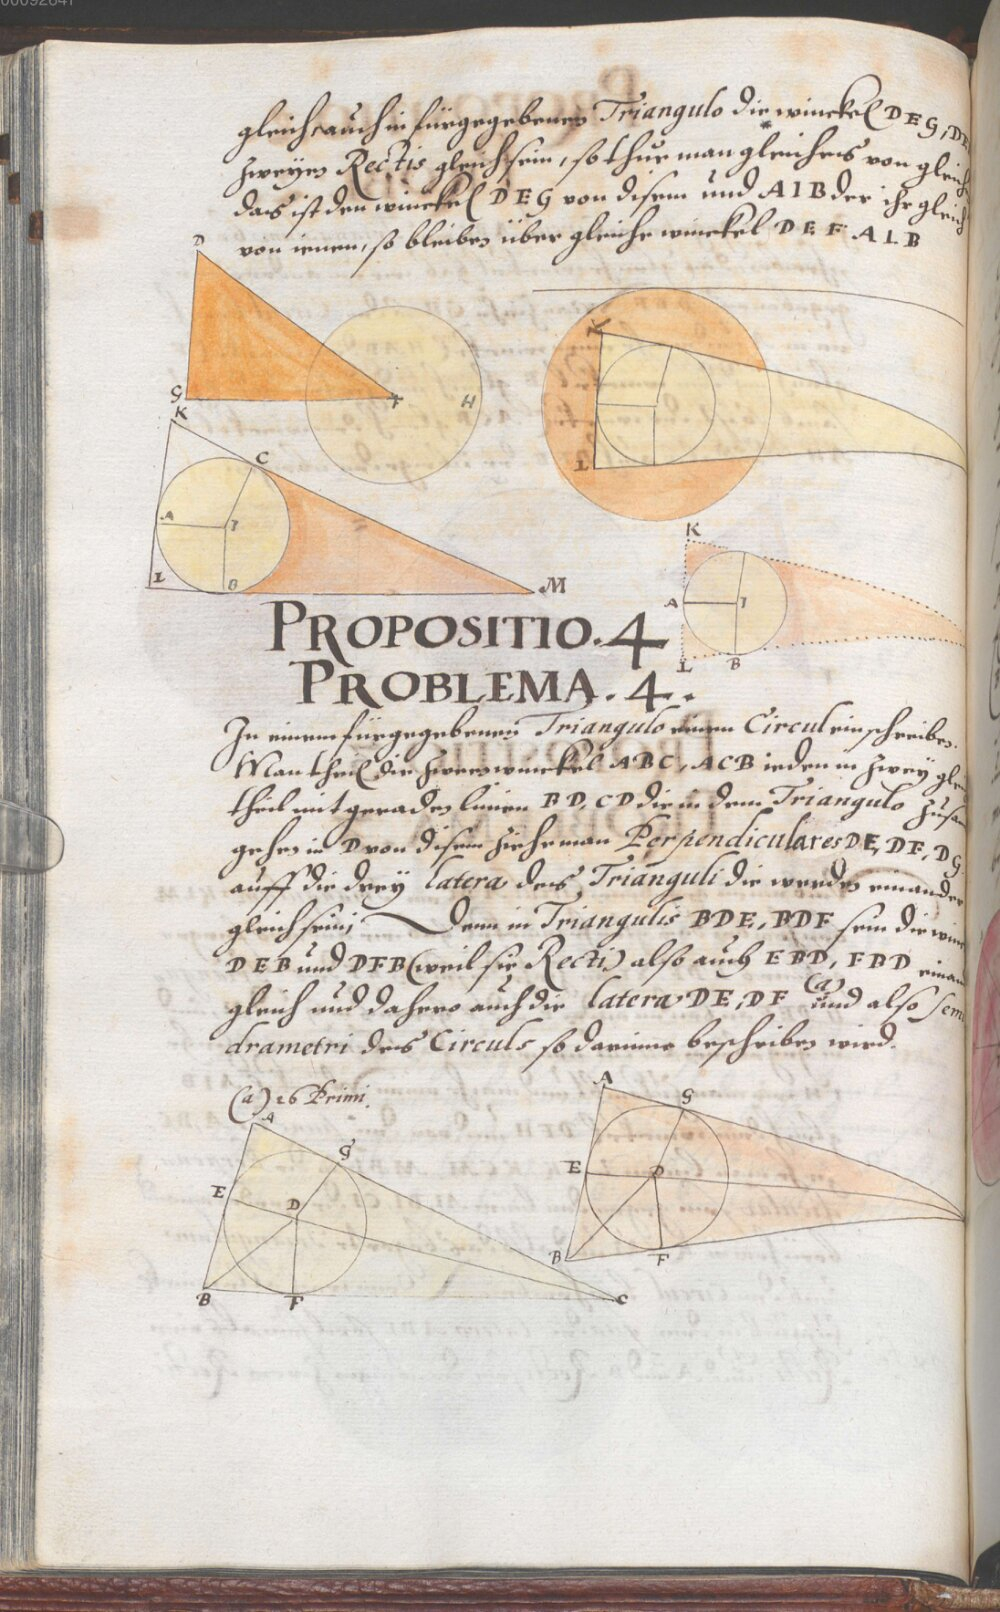 gleich, auch in fürgegebenen Triangulo die winckel DEG, DE
zweyen Rectis gleich sein, so thue man gleiches von gleich
das ist den winckel DEG von disem und AIB der ihr gleich
von ienem, so bleiben über gleiche winckel DEF ALB
D
G
F
H
K
L
K
C
A
I
L
B
M
K
A
I
L
B
PROPOSITIO. 4
PROBLEMA. 4.
In einem fürgegebenen Triangulo einen Circul einschreiben.
Man theil die zween winckel ABC, ACB ieden in zwey glei
theil mit geraden linien BD, CD die in dem Triangulo zusa
gehen in D von disem ziehe man Perpendiculares DE, DF, DG
auff die drey latera des Trianguli die werden einander
gleich sein; Denn in Triangulis BDE, BDF sein die win
DEB und DFB (weil sie Recti) also auch EBD, FBD einan
gleich und dahero auch die latera DE, DF (a) und also sem
diametri des Circuls so darinne beschriben wird.
(a) 26 Primi.
A
G
E
D
B
F
C
A
G
E
D
B
F